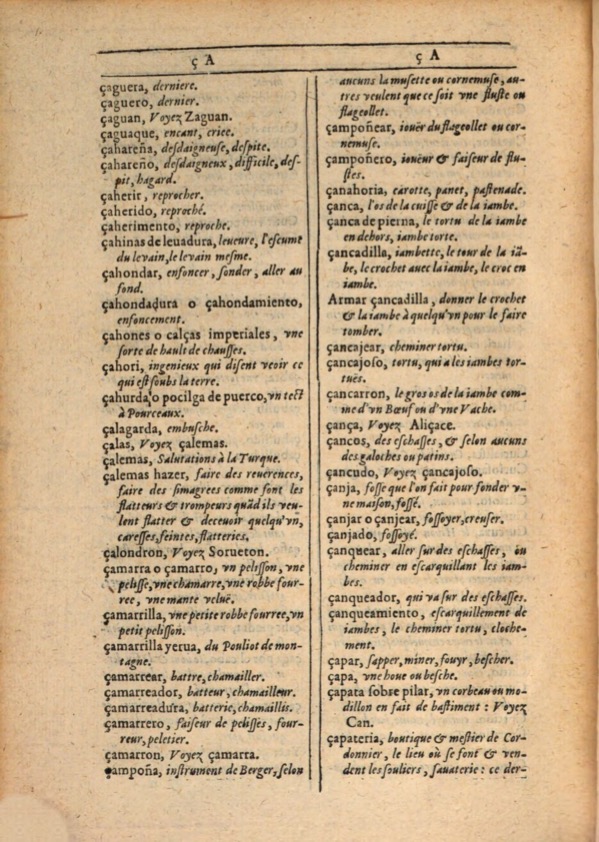 ç A
çaguera, derniere.
çaguero, dernier.
çaguan, Voyez Zaguan.
çaguaque, encant, criee.
çahareña, desdaigneuse, despite.
çahareño, desdaigneux, difficile, des-
pit, hagard.
çaherir, reprocher.
çaherido, reproché.
çaherimento, reproche.
çahinas de leuadura, leueure, l'escume
du levain, le levain mesme.
çahondar, enfoncer, fonder, aller au
fond.
çahondadura o çahondamiento,
enfoncement.
çahones o calças imperiales, vne
sorte de hault de chausses.
çahori, ingenieux qui disent veoir ce
qui est soubs la terre.
çahurda o pocilga de puerco, vn tect
à Pourceaux.
çalagarda, embusche.
çalas, Voyez çalemas.
çalemas, Salutations à la Turque.
çalemas hazer, faire des reuerences,
faire des simagrees comme font les
flatteurs & trompeurs quãd ils veu-
lent flatter & deceuoir quelqu'vn,
caresses, feintes, flatteries.
çalondron, Voyez Sorueton.
çamarra o çamarro, vn pelisson, vne
pelisse, vne chamarre, vne robbe four-
ree, vne mante veluë.
çamarrilla, vne petite robbe fourree, vn
petit pelisson.
çamarrilla yerua, du Pouliot de mon-
tagne.
çamarrear, battre, chamailler.
çamarreador, batteur, chamailleur.
çamarreadura, batterie, chamaillis.
çamarrero, faiseur de pelisses, four-
reur, peletier.
çamarron, Voyez çamarra.
çampoña, instrument de Berger, selon
ç A
aucuns la musette ou cornemuse, au-
tres veulent que ce soit vne fluste ou
flageollet.
çampoñear, iouër du flageollet ou cor-
nemuse.
çampoñero, ioueur & faiseur de flu-
stes.
çanahoria, carotte, panet, pastenade.
çanca, l'os de la cuisse & de la iambe.
çanca de pierna, le tortu de la iambe
en dehors, iambe torte.
çancadilla, iambette, le tour de la iã-
be, le crochet auec la iambe, le croc en
iambe.
Armar çancadilla, donner le crochet
& la iambe à quelqu'vn pour le faire
tomber.
çancajear, cheminer tortu.
çancajoso, tortu, qui a les iambes tor-
tuës.
çancarron, le gros os de la iambe com-
me d'vn Bœuf ou d'vne Vache.
çança, Voyez Aliçace.
çancos, des eschasses, & selon aucuns
des galoches ou patins.
çancudo, Voyez çancajoso.
çanja, fosse que l'on fait pour fonder v-
ne maison, fossé.
çanjar o çanjear, fossoyer, creuser.
çanjado, fossoyé.
çanquear, aller sur des eschasses, ou
cheminer en escarquillant les iam-
bes.
çanqueador, qui va sur des eschasses.
çanqueamiento, escarquillement de
iambes, le cheminer tortu, cloche-
ment.
çapar, sapper, miner, fouyr, bescher.
çapa, vne houe ou besche.
çapata sobre pilar, vn corbeau ou mo-
dillon en fait de bastiment : Voyez
Can.
çapateria, boutique & mestier de Cor-
donnier, le lieu où se font & ven-
dent les souliers, sauaterie : ce der-